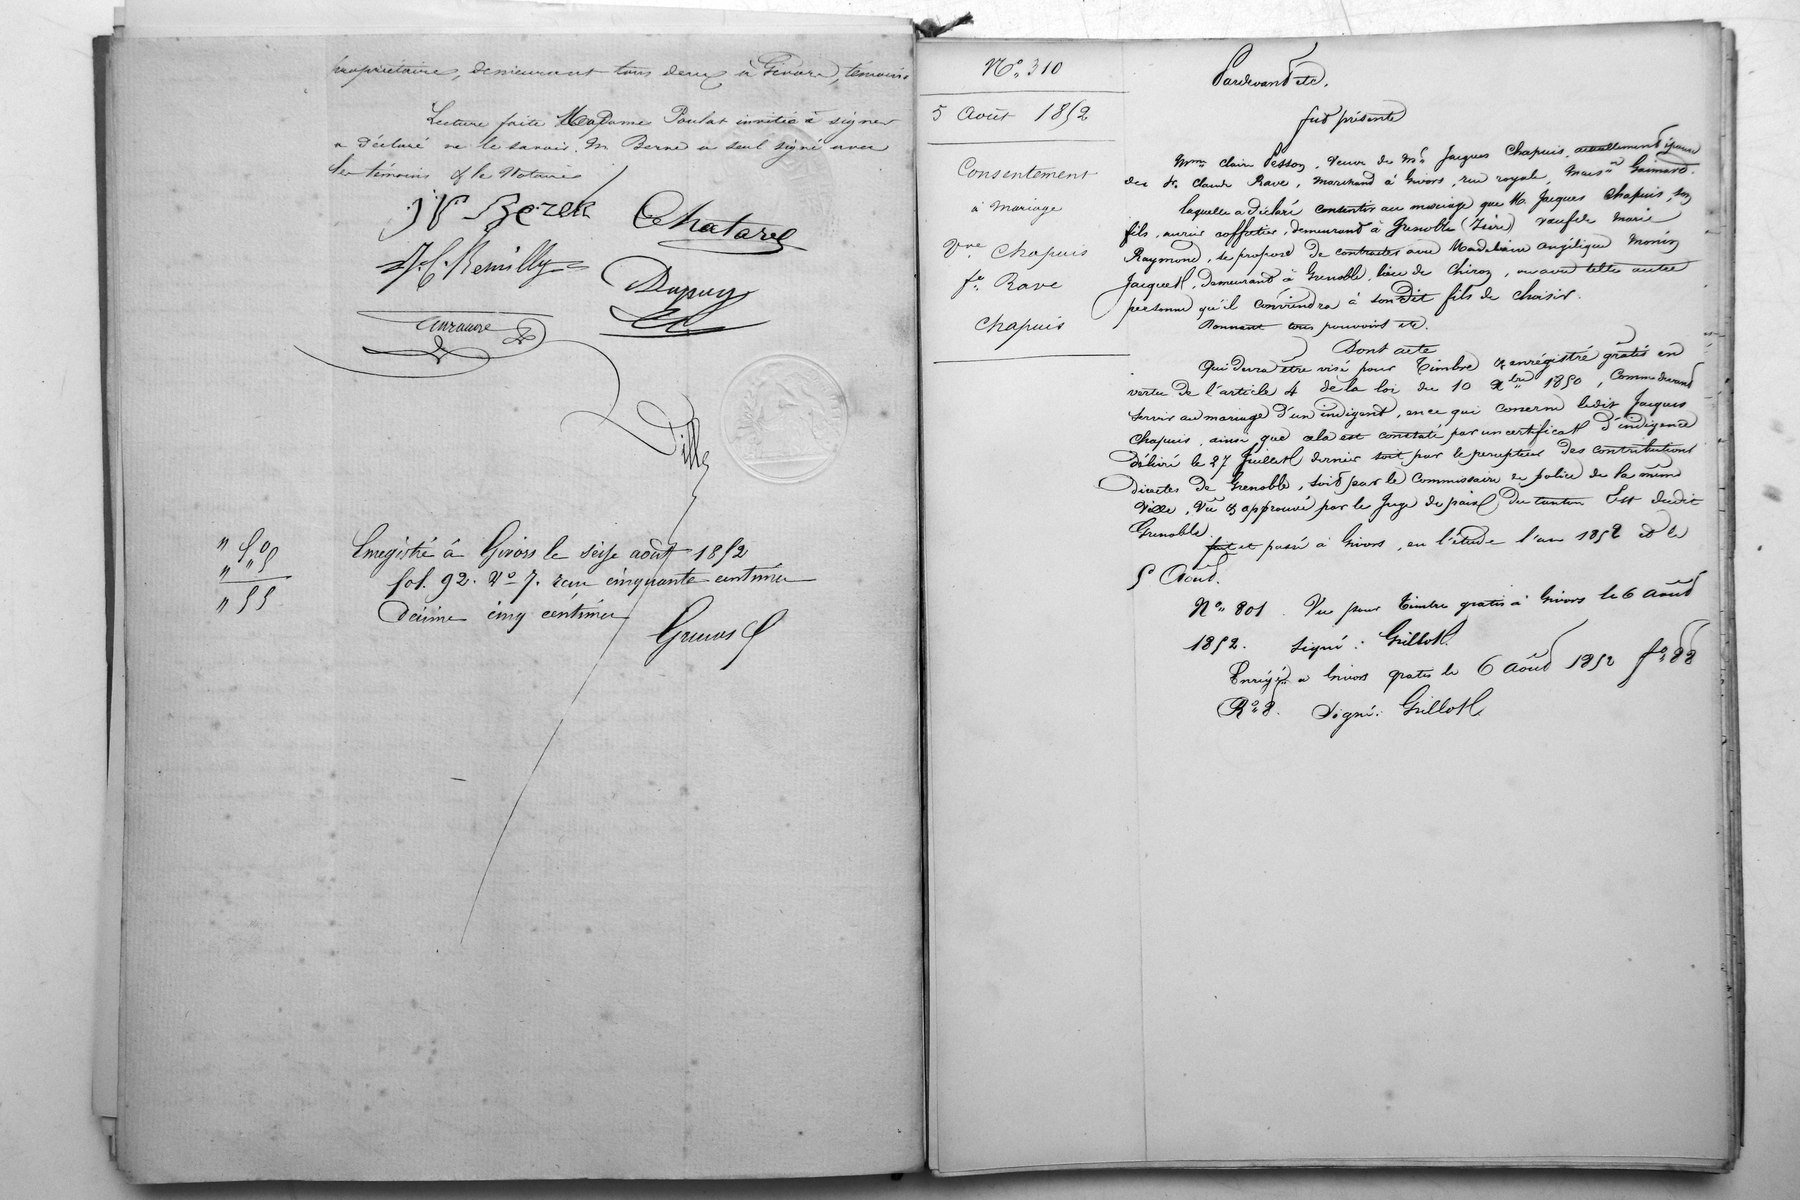 propriétaire, demeurant tous deux à Givors, témoins
Lecture faite Madame Poulat invitée à signer
a déclaré ne le savoir. M. Berne a seul signé avec
les témoins & le Notaire
Chatard
A. C. Remilly
Dupuy
" 50
" "5
" 55
Enregistré à Givors le seize août 1852
fol. 92. No 7. reçu cinquante centimes
Décime cinq centimes
No. 310
5 Août 1852
Consentement
à Mariage
Vve. Chapuis
fe. Rave
Chapuis
Pardevant etc.
fut présente
Mme Claire Pesson, veuve de Mr Jacques Chapuis, actuellement épouse
de Sr. Claude Rave, marchand à Givors, rue royale, Maison Guimard.
laquelle a déclaré consentir au mariage que M. Jacques Chapuis, son
fils, ouvrier coffretier, demeurant à Grenoble (Isère) veuf de Marie
Raymond, se propose de contracter avec Madeleine Angélique Monin
Jacquet, demeurant à Grenble, ou avec telle autre
personne qu'il conviendra à son dit fils de choisir.
Donnant tous pouvoirs etc.
Dont acte
Qui devra être visé pour timbre & enrégistré gratis en
vertu de l'article 4 de la loi du 10 Xbre 1850, comme devant
servir au mariage d'un indigent, en ce qui concerne ledit Jacques
Chapuis, ainsi que cela est constaté par un certificat d'indigence
délivré le 27 Juillet dernier soit par le percepteur des contributions
directes de Grenoble, soit par le Commissaire de police de la même
Ville, Vu & approuvé par le Juge de paix du canton Est dudit
Grenoble.
fait et passé à Givors, en l'étude l'an 1852 et le
5 Août.
No. 801. Vu pour timbre gratis à Givors le 6 Août
1852. signé : Grillot.
Enrégé. à Givors gratis le 6 Août 1852 fo. 88
Ro. 8. Signé : Grillot.